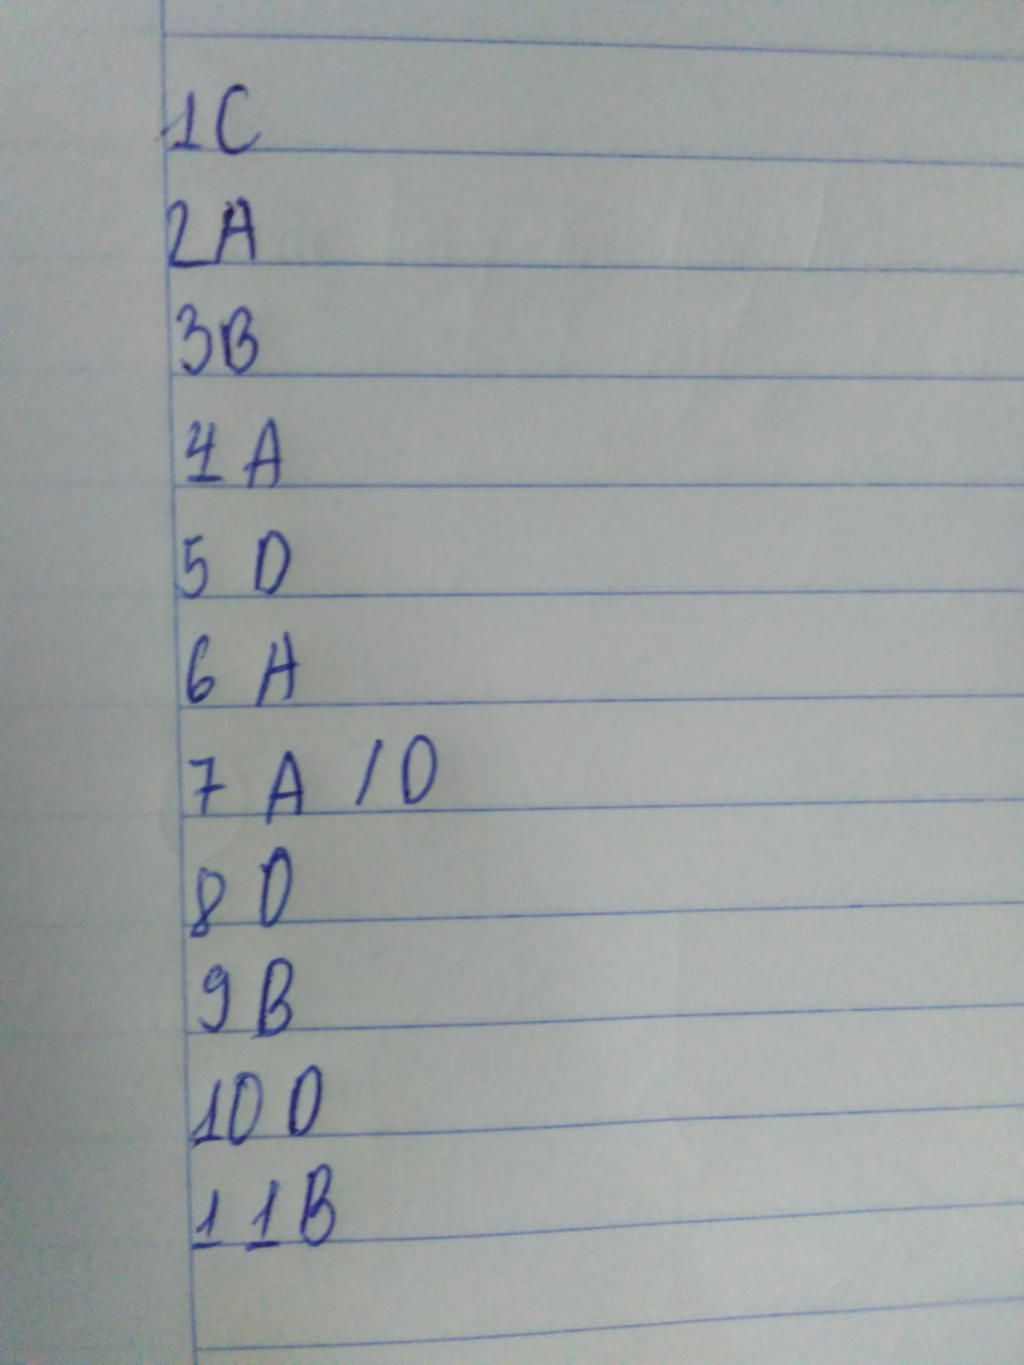 1C
2A
3B
4 A
5 D
6 A
7 A / D
8 D
9 B
10 D
11B